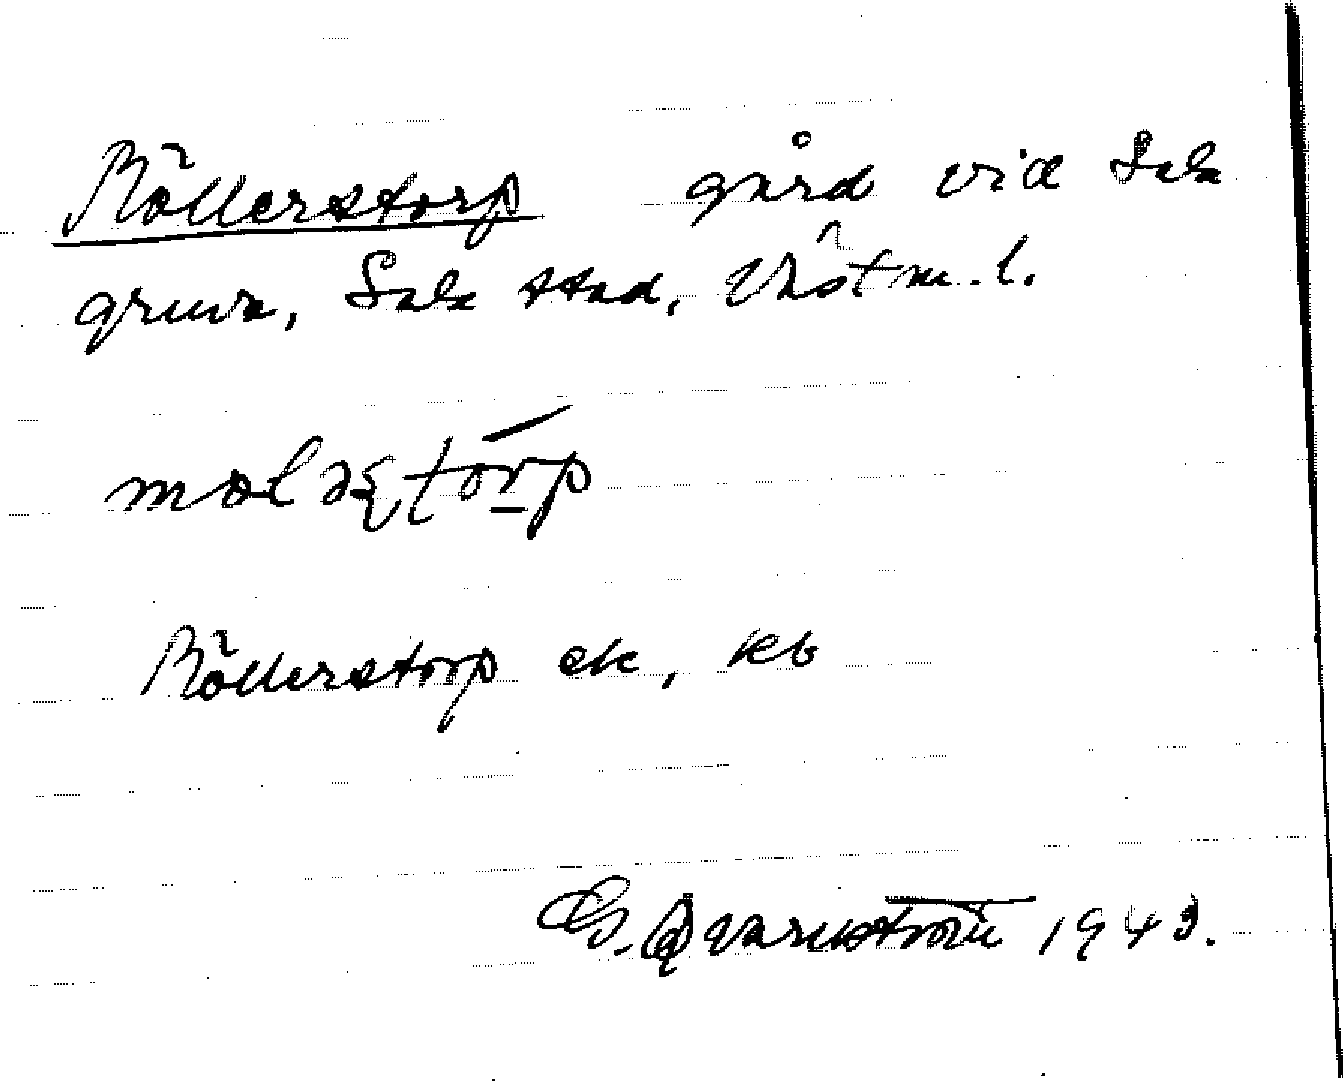 Möllerstorp gård vid Sala
gruva, Sala stad, Västm.l.
møləʂtórp
Möllerstorp ek, kb
G. Qvarnström 1943.